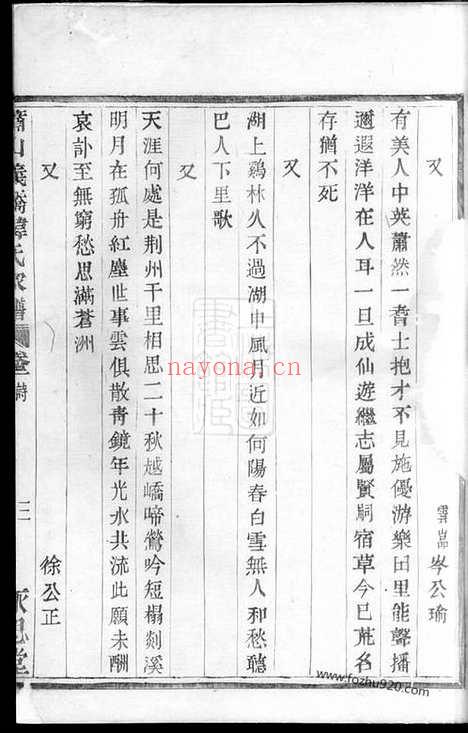 又
雲嵓 岑公瑜
有美人中英蕭然一耆士抱才不見施優游樂田里能聲播
邇遐洋洋在人耳一旦成仙遊繼志屬賢嗣宿草今已荒名
存猶不死
又
湖上鷄林久不過湖中風月近如何陽春白雪無人和愁聽
巴人下里歌
又
徐公正
天涯何處是荆州千里相思二十秋越嶠啼鶯吟短榻剡溪
明月在孤舟紅塵世事雲俱散靑鏡年光水共流此願未酬
哀訃至無窮愁思滿蒼洲
蕭山義橋韓氏家譜 卷 詩
三
永思堂
nayona.cn
www.fozhu920.com